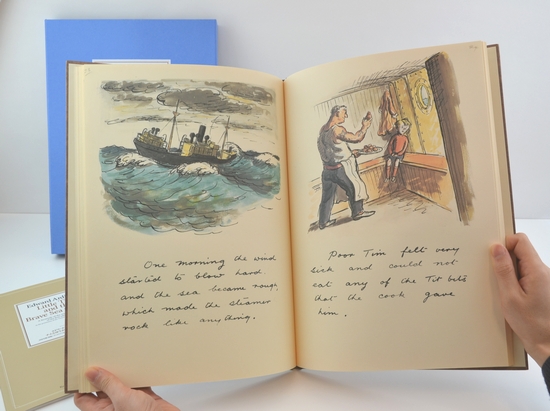 One morning the wind
started to blow hard.
and the sea became rough,
which made the steamer
rock like anything.
Poor Tim felt very
sick and could not
eat any of the Tit bits
that the cook gave
him.
Edward Ard
Little T
and th
Brave Sea